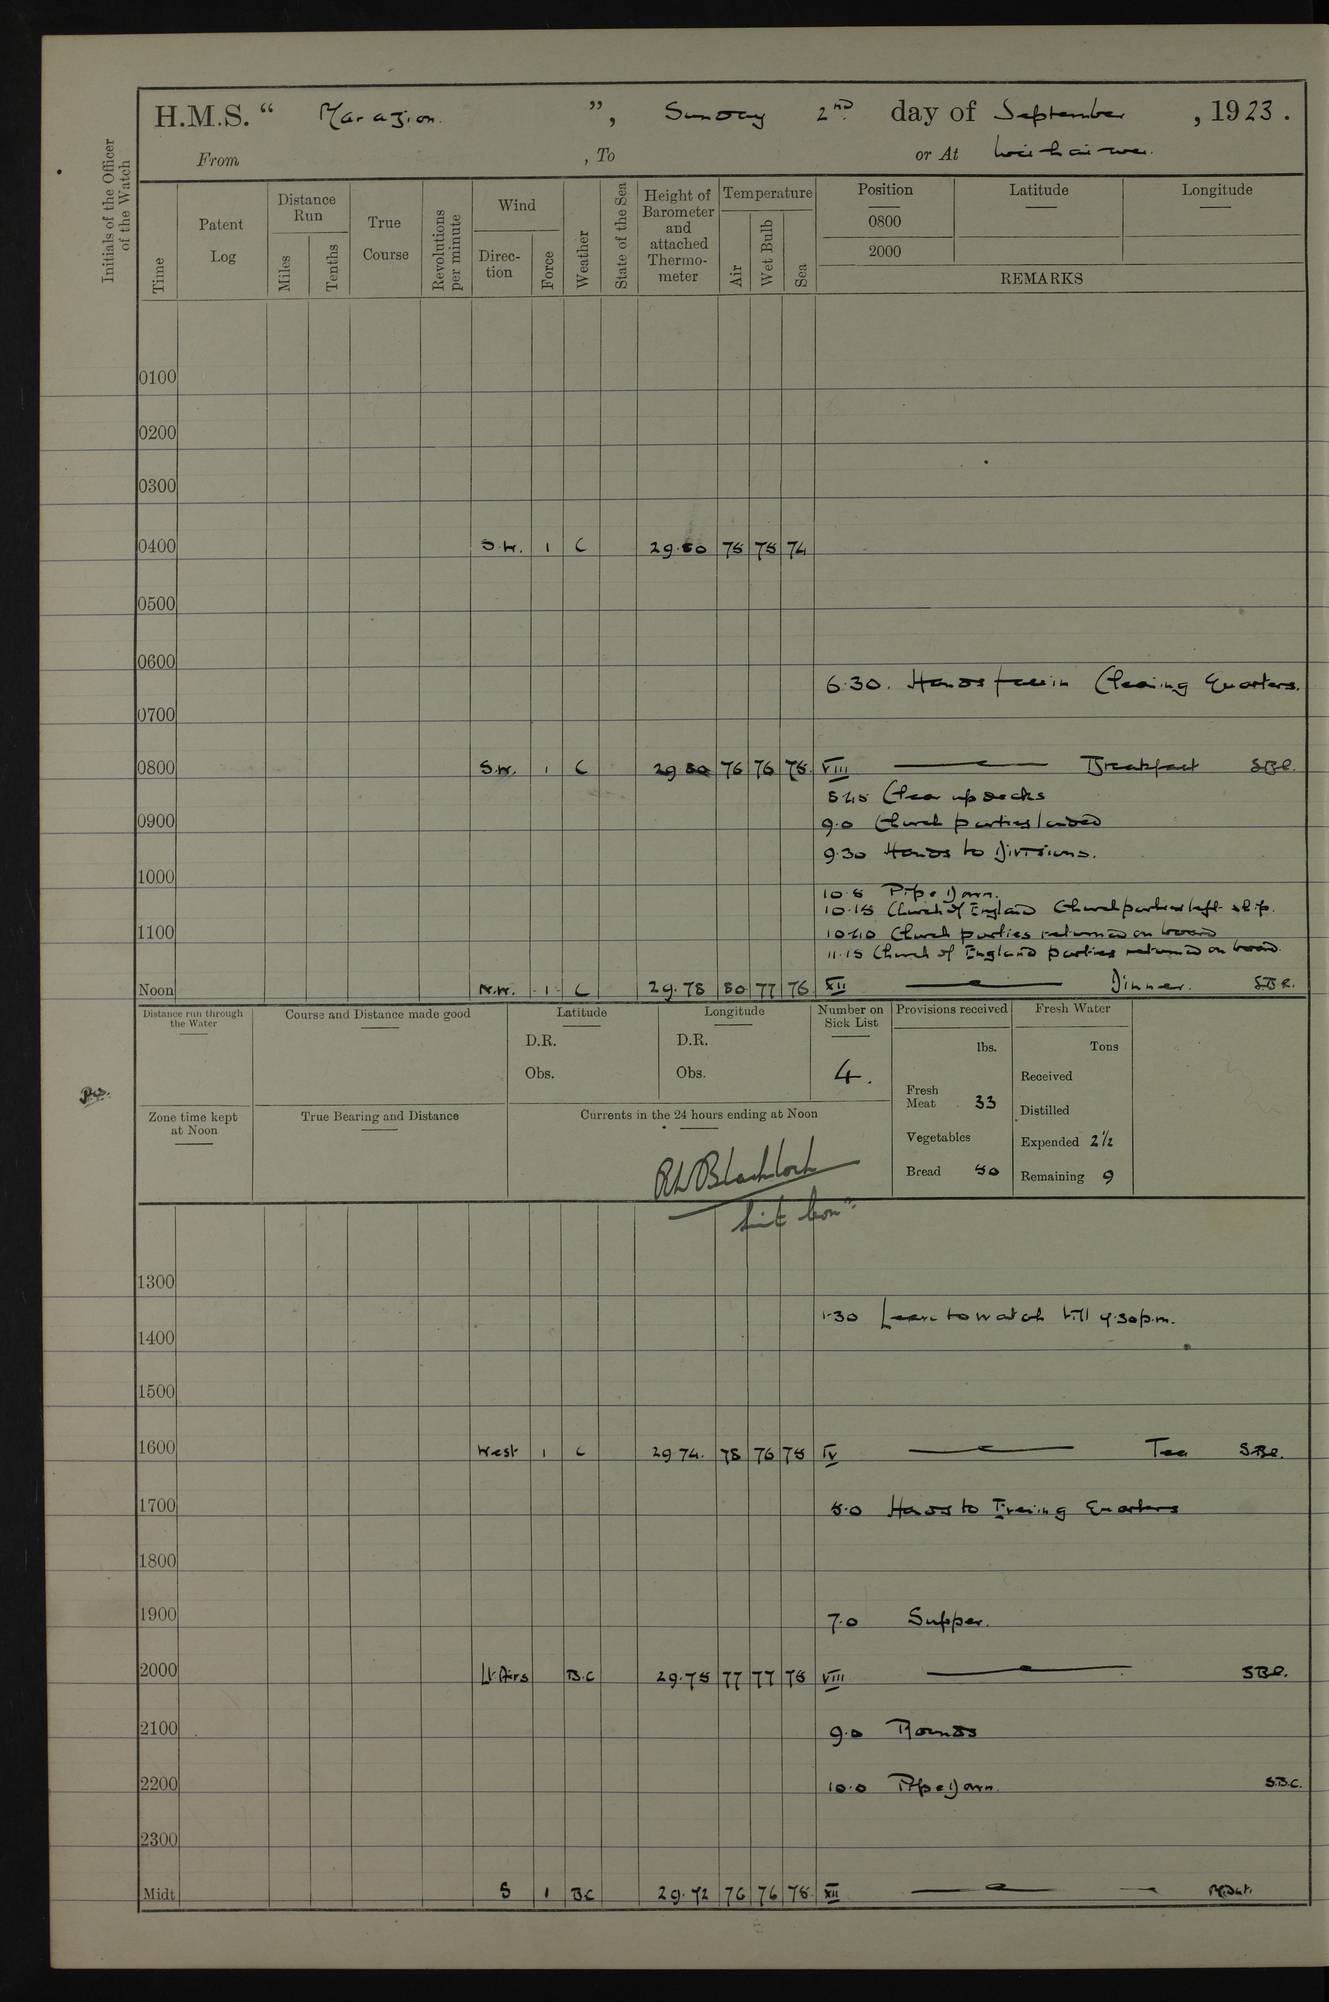 H.M.S. “ Marazion. ”, Sunday 2nd day of September , 1923.
From , To or At Weihaiwei.
Initials of the Officer of the Watch
Time
Patent Log
Distance Run
Miles
Tenths
True Course
Revolutions per minute
Wind
Direc- tion
Force
Weather
State of the Sea
Height of Barometer and attached Thermo- meter
Temperature
Air
Wet Bulb
Sea
Position Latitude Longitude
0800
2000
REMARKS
0100
0200
0300
0400 S.W. 1 C 29.80 75 75 74
0500
0600
6.30. Hands fall in Cleaning Quarters.
0700
0800 S.W. 1 C 29 80 76 76 75. VIII Breakfast
8.45 Clear up decks
0900 9.0 Church parties landed
9.30 Hands to Divisions.
1000 10.5 Pipe Down.
10.15 Church of England Church parties left ship.
1100 10.40 Church parties returned on board
11.15 Church of England parties returned on board.
Noon N.W. 1 C 29.78 80 77 76 XII Dinner.
Distance run through the Water
Course and Distance made good
Latitude
D.R.
Obs.
Longitude
D.R.
Obs.
Number on Sick List
4.
Provisions received
lbs.
Fresh Meat 33
Vegetables
Bread 50
Fresh Water
Tons
Received
Distilled
Expended 2½
Remaining 9
Zone time kept at Noon
True Bearing and Distance
Currents in the 24 hours ending at Noon
1300
1.30 Leave to watch till 9.30 p.m.
1400
1500
1600 West 1 C 29 74. 78 76 75 IV Tea
1700 5.0 Hands to Evening Quarters
1800
1900 7.0 Supper.
2000 Lt. Airs B.C 29.75 77 77 75 VIII
2100 9.0 Rounds
2200 10.0 Pipe Down.
2300
Midt. S 1 B.C 29.72 76 76 75. XII